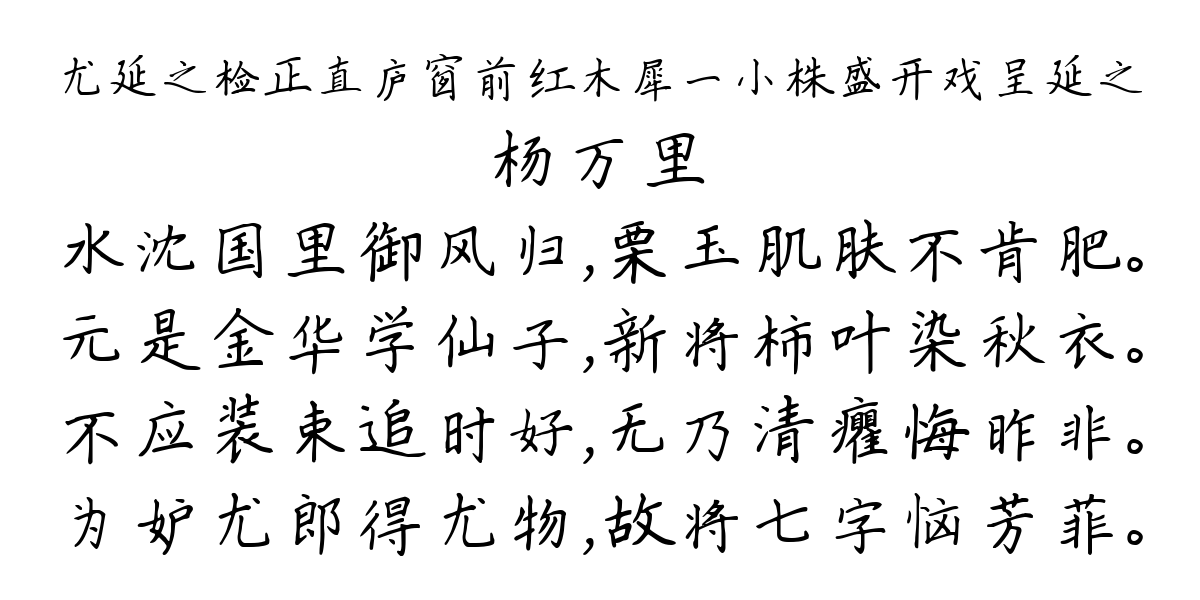 尤延之检正直庐窗前红木犀一小株盛开戏呈延之
杨万里
水沈国里御风归,栗玉肌肤不肯肥。
元是金华学仙子,新将柿叶染秋衣。
不应装束追时好,无乃清癯悔昨非。
为妒尤郎得尤物,故将七字恼芳菲。